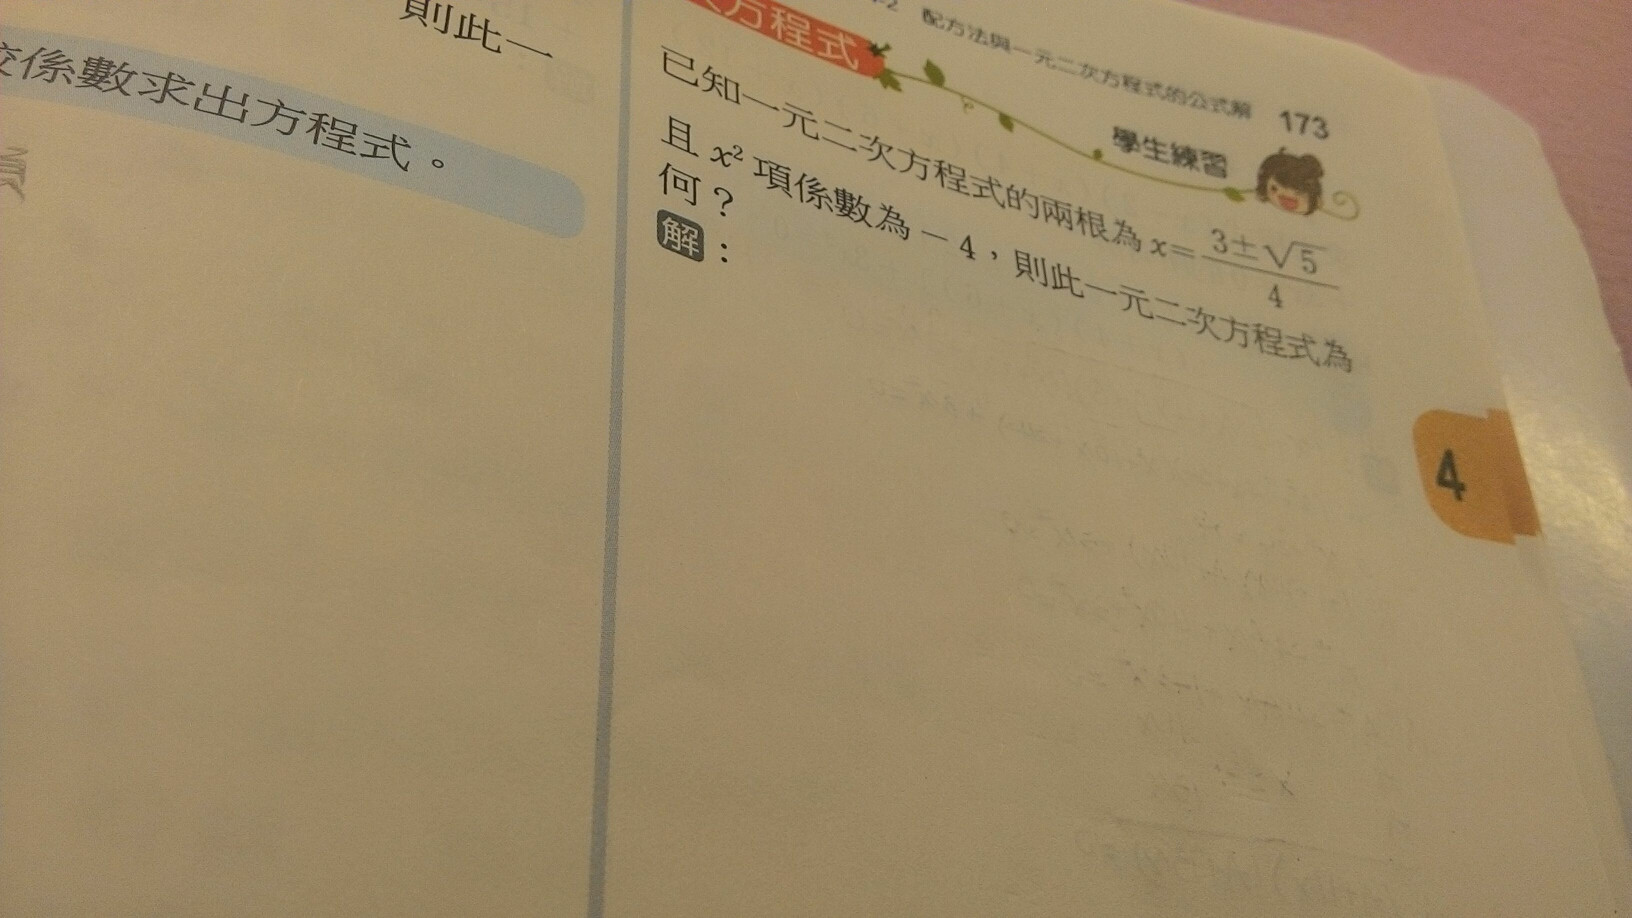 則此一
係數求出方程式。
方程式
配方法與一元二次方程式的公式解 173
學生練習
已知一元二次方程式的兩根為 x=\frac{3±√5}{4}
且 x² 項係數為－4，則此一元二次方程式為
何？
解：
4